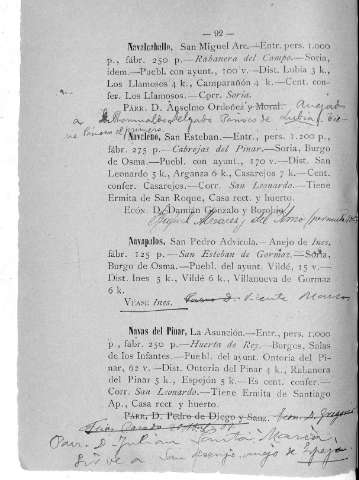 — 92 —
Navalcaballo, San Miguel Arc.—Entr., pers. 1.000
p., fábr. 250 p.—Rabanera del Campo.—Soria,
idem.—Puebl. con ayunt., 100 v.—Dist. Lubia 5 k.,
Los Llamosos 4 k., Camparañón 4 k.—Cent. con-
fer. Los Llamosos.—Corr. Soria.
PÁRR. D. Anselmo Ordóñez y Moral. Anejado
a D. Romualdo Delgado Párroco de Lubia
Navaleno, San Esteban.—Entr., pers. 1.200 p.,
fábr. 275 p.—Cabrejas del Pinar.—Soria, Burgo
de Osma.—Puebl. con ayunt., 170 v.—Dist. San
Leonardo 5 k., Arganza 6 k., Casarejos 7 k.—Cent.
confer. Casarejos.—Corr. San Leonardo.—Tiene
Ermita de San Roque, Casa rect. y huerto.
Ecón. D. Damián Gonzalo y Borobio
Miguel Alvarez del
Navapalos, San Pedro Advícula.—Anejo de Ines,
fábr. 125 p.—San Esteban de Gormaz.—Soria,
Burgo de Osma.—Puebl. del ayunt. Vildé, 15 v.—
Dist. Ines 5 k., Vildé 6 k., Villanueva de Gormaz
6 k.
VÉASE Ines. D. Vicente
Navas del Pinar, La Asunción.—Entr., pers. 1.000
p., fábr. 250 p.—Huerta de Rey.—Burgos, Salas
de los Infantes.—Puebl. del ayunt. Ontoria del Pi-
nar, 62 v.—Dist. Ontoria del Pinar 4 k., Rabanera
del Pinar 3 k., Espejón 5 k.—Es cent. confer.—
Corr. San Leonardo.—Tiene Ermita de Santiago
Ap., Casa rect. y huerto.
PÁRR. D. Pedro de Diego y Sanz. D. Gregorio
Parr. D. Julian
Sirve a San